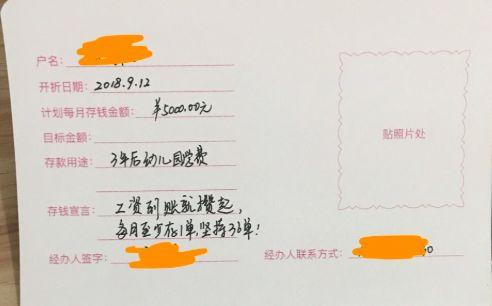 户名：
开折日期：2018.9.12
计划每月存钱金额：¥5000.00元
目标金额：
存款用途：3年后幼儿园学费
存钱宣言：工资到账就攒起，
每月至少存1单，坚持36单！
贴照片处
经办人签字：
经办人联系方式：